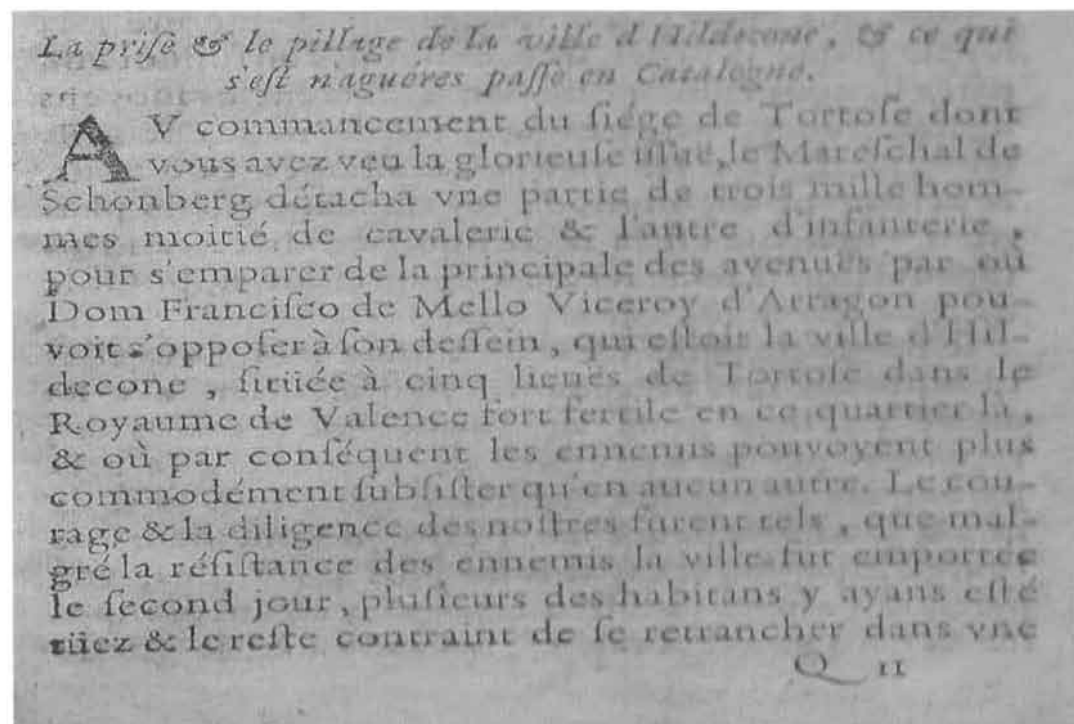 La prise & le pillage de la ville d'Hildecone, & ce qui
s'est n'aguéres passé en Catalogne.
AV commancement du siége de Tortose dont
vous avez veu la glorieuse issuë, le Mareschal de
Schonberg détacha vne partie de trois mille hom-
mes moitié de cavalerie & l'autre d'infanterie,
pour s'emparer de la principale des avenuës par où
Dom Francisco de Mello Viceroy d'Arragon pou-
voit s'opposer à son dessein, qui estoit la ville d'Hil-
decone, sitüée à cinq lieuës de Tortose dans le
Royaume de Valence fort fertile en ce quartier là,
& où par conséquent les ennemis pouvoyent plus
commodément subsister qu'en aucun autre. Le cou-
rage & la diligence des nostres furent tels, que mal-
gré la résistance des ennemis la ville fut emportée
le second jour, plusieurs des habitans y ayans esté
tüez & le reste contraint de se retrancher dans vne
Q II